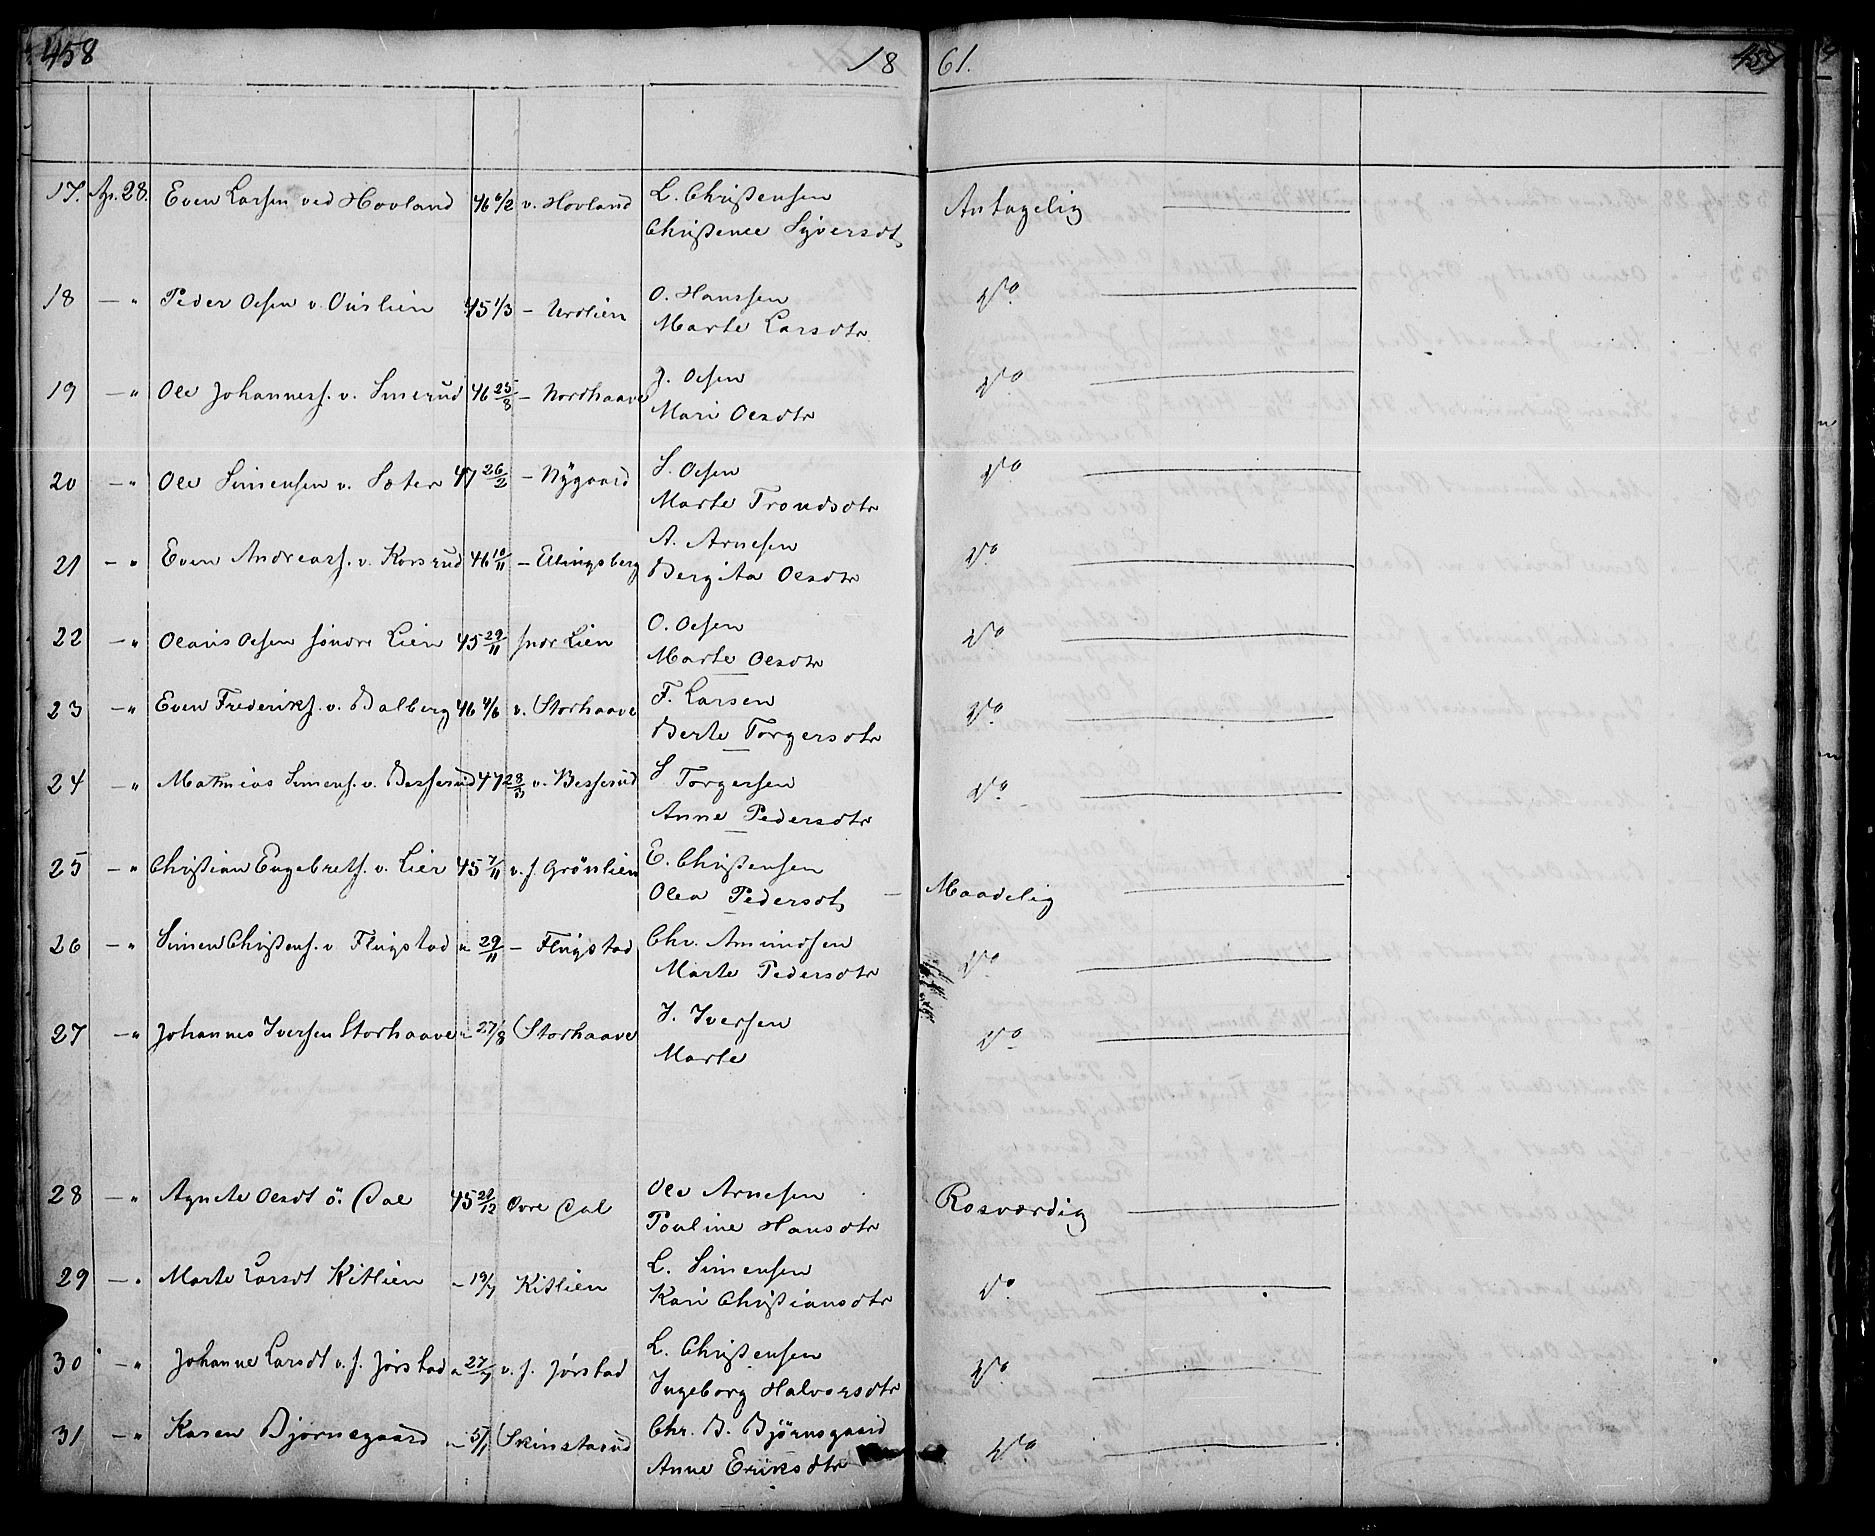 458 1861.
17. Ap. 28. Even Larsen ved Hovland 46 6/2 v. Hovland L. Christensen Antagelig
Christence Syversdt
18 — " Peder Olsen v. Ouslien 45 1/3 — Urdlien O. Hanssen Do
Marte Larsdtr
19 — " Ole Johanness. v. Smerud 46 25/8 — Nordhaave J. Olsen Do
Mari Olesdtr
20 — " Ole Simensen v. Sæter 47 26/2 — Nygaard S. Olsen Do
Marte Trondsdtr
21 — " Even Andreass. v. Korsrud 46 10/11 — Ellingsberg A. Arnesen Do
Bergita Olesdtr
22 — " Olaus Olsen søndre Lien 45 29/11 sndr Lien O. Olsen Do
Marte Olesdtr
23 — " Even Frederiks. v. Balberg 46 4/6 v. Storhaave F. Larsen Do
Berte Torgersdtr
24 — " Mathias Simens. v. Besserud 47 28/3 v. Besserud S Torgersen Do
Anne Pedersdtr
25 — " Christian Engebrets. v. Lier 45 7/11 v. s Grönlien E. Christensen
Olea Pedersdt — Maadelig
26 — " Simen Christens. v. Flugstad " 29/11 — Flugstad Chr. Amundsen Do
Marte Pedersdtr
27 — " Johannes Iversen Storhaave " 27/8 Storhaave I. Iversen Do
Marte
28 — " Agnete Olesdt ö. Dal 45 29/12 Övre Dal Ole Arnesen Rosværdig
Pauline Hansdtr
29 — " Marte Larsdt Kitlien — 19/7 Kitlien L. Simensen Do
Kari Christiansdtr
30 — " Johanne Larsdt v. s. Jørstad " 27/7 v. s. Jørstad L. Christensen Do
Ingeborg Halvorsdtr
31 — " Karen Bjørnsgaard — 5/1 Skinstasud Chr. B. Bjørnsgaard Do
Anne Eriksdtr